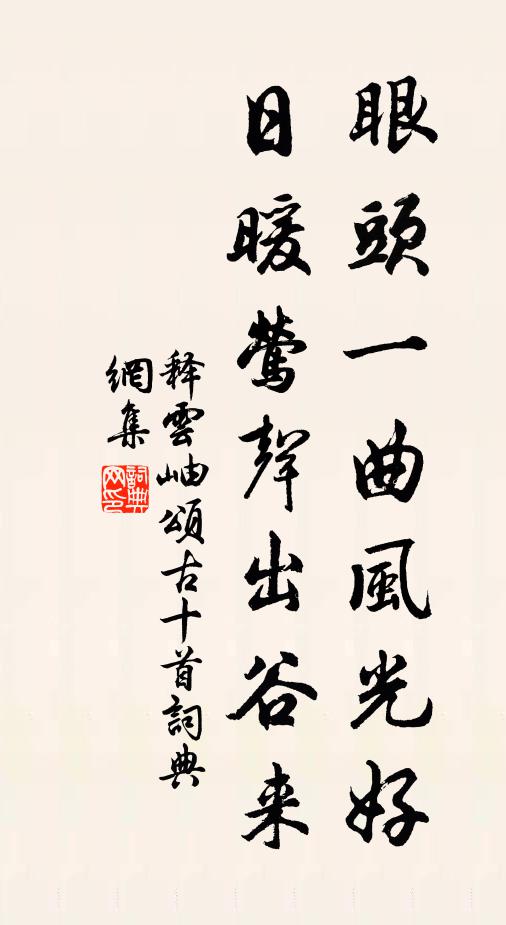 眼頭一曲風光好
日暖鶯聲出谷来
释雲岫頌古十首詞典
網集
詞典网印